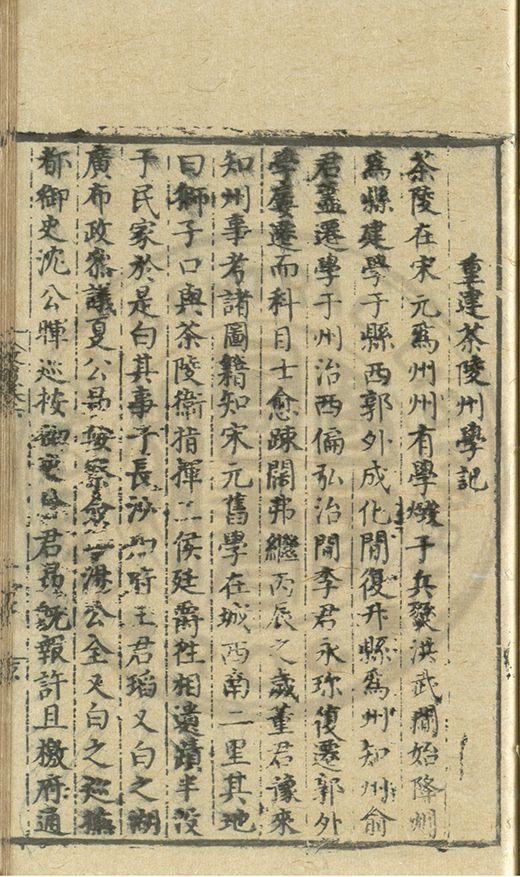 重建茶陵州學記
茶陵在宋元爲州州有學燬于兵燹洪武間始降州
爲縣建學于縣西郭外成化間復升縣爲州知州俞
君藎遷學于州治西偏弘治間李君永珎復遷郭外
學屢遷而科目士愈踈闊弗繼丙辰之歲董君豫來
知州事考諸圖籍知宋元舊學在城西南二里其地
曰獅子口與茶陵衛指揮二侯廷爵徃相遺蹟半沒
于民家於是白其事于長沙知府王君瑫又白之湖
廣布政叅議夏公昂按察僉事公全又白之巡撫
都御史沈公暉巡按御史君昂旣報許且檄府通